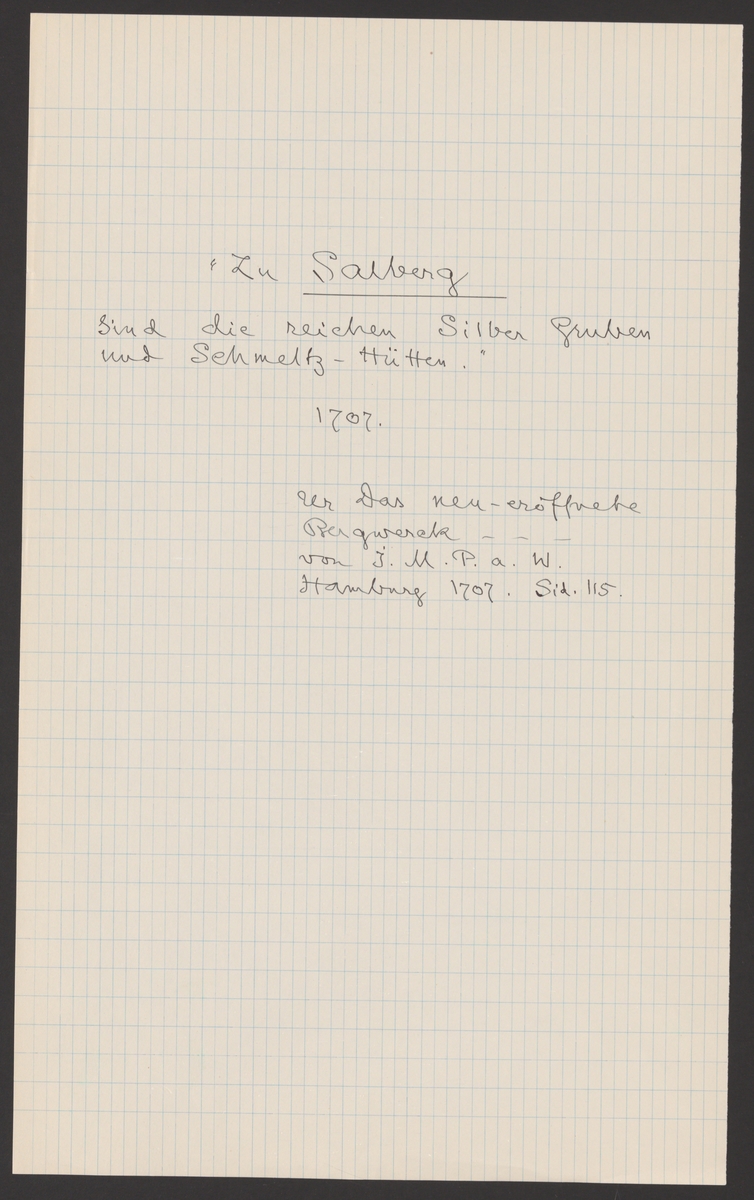 "Zu Salberg
Sind die reichen Silber Gruben
und Schmeltz-Hütten."
1707.
ur Das neu-eröffnete
Bergwerck - - -
von J. M. P. a. W.
Hamburg 1707. Sid. 115.